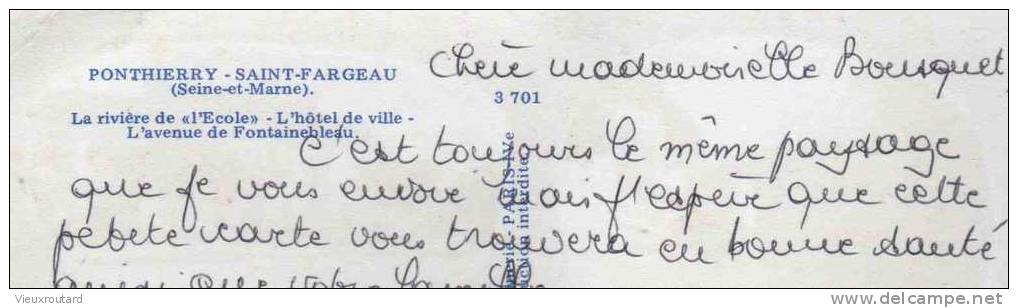 PONTHIERRY - SAINT-FARGEAU
(Seine-et-Marne).
La rivière de «l'Ecole» - L'hôtel de ville -
L'avenue de Fontainebleau.
3 701
Chère mademoiselle Bousquet
C'est toujours le même paysage
que je vous envoie mais j'espère que cette
petite carte vous trouvera en bonne santé
ainsi que votre
PARIS-IVe
interdite
Vieuxroutard
www.delcampe.net